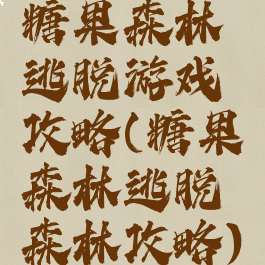 糖果森林
逃脱游戏
攻略(糖果
森林逃脱
森林攻略)